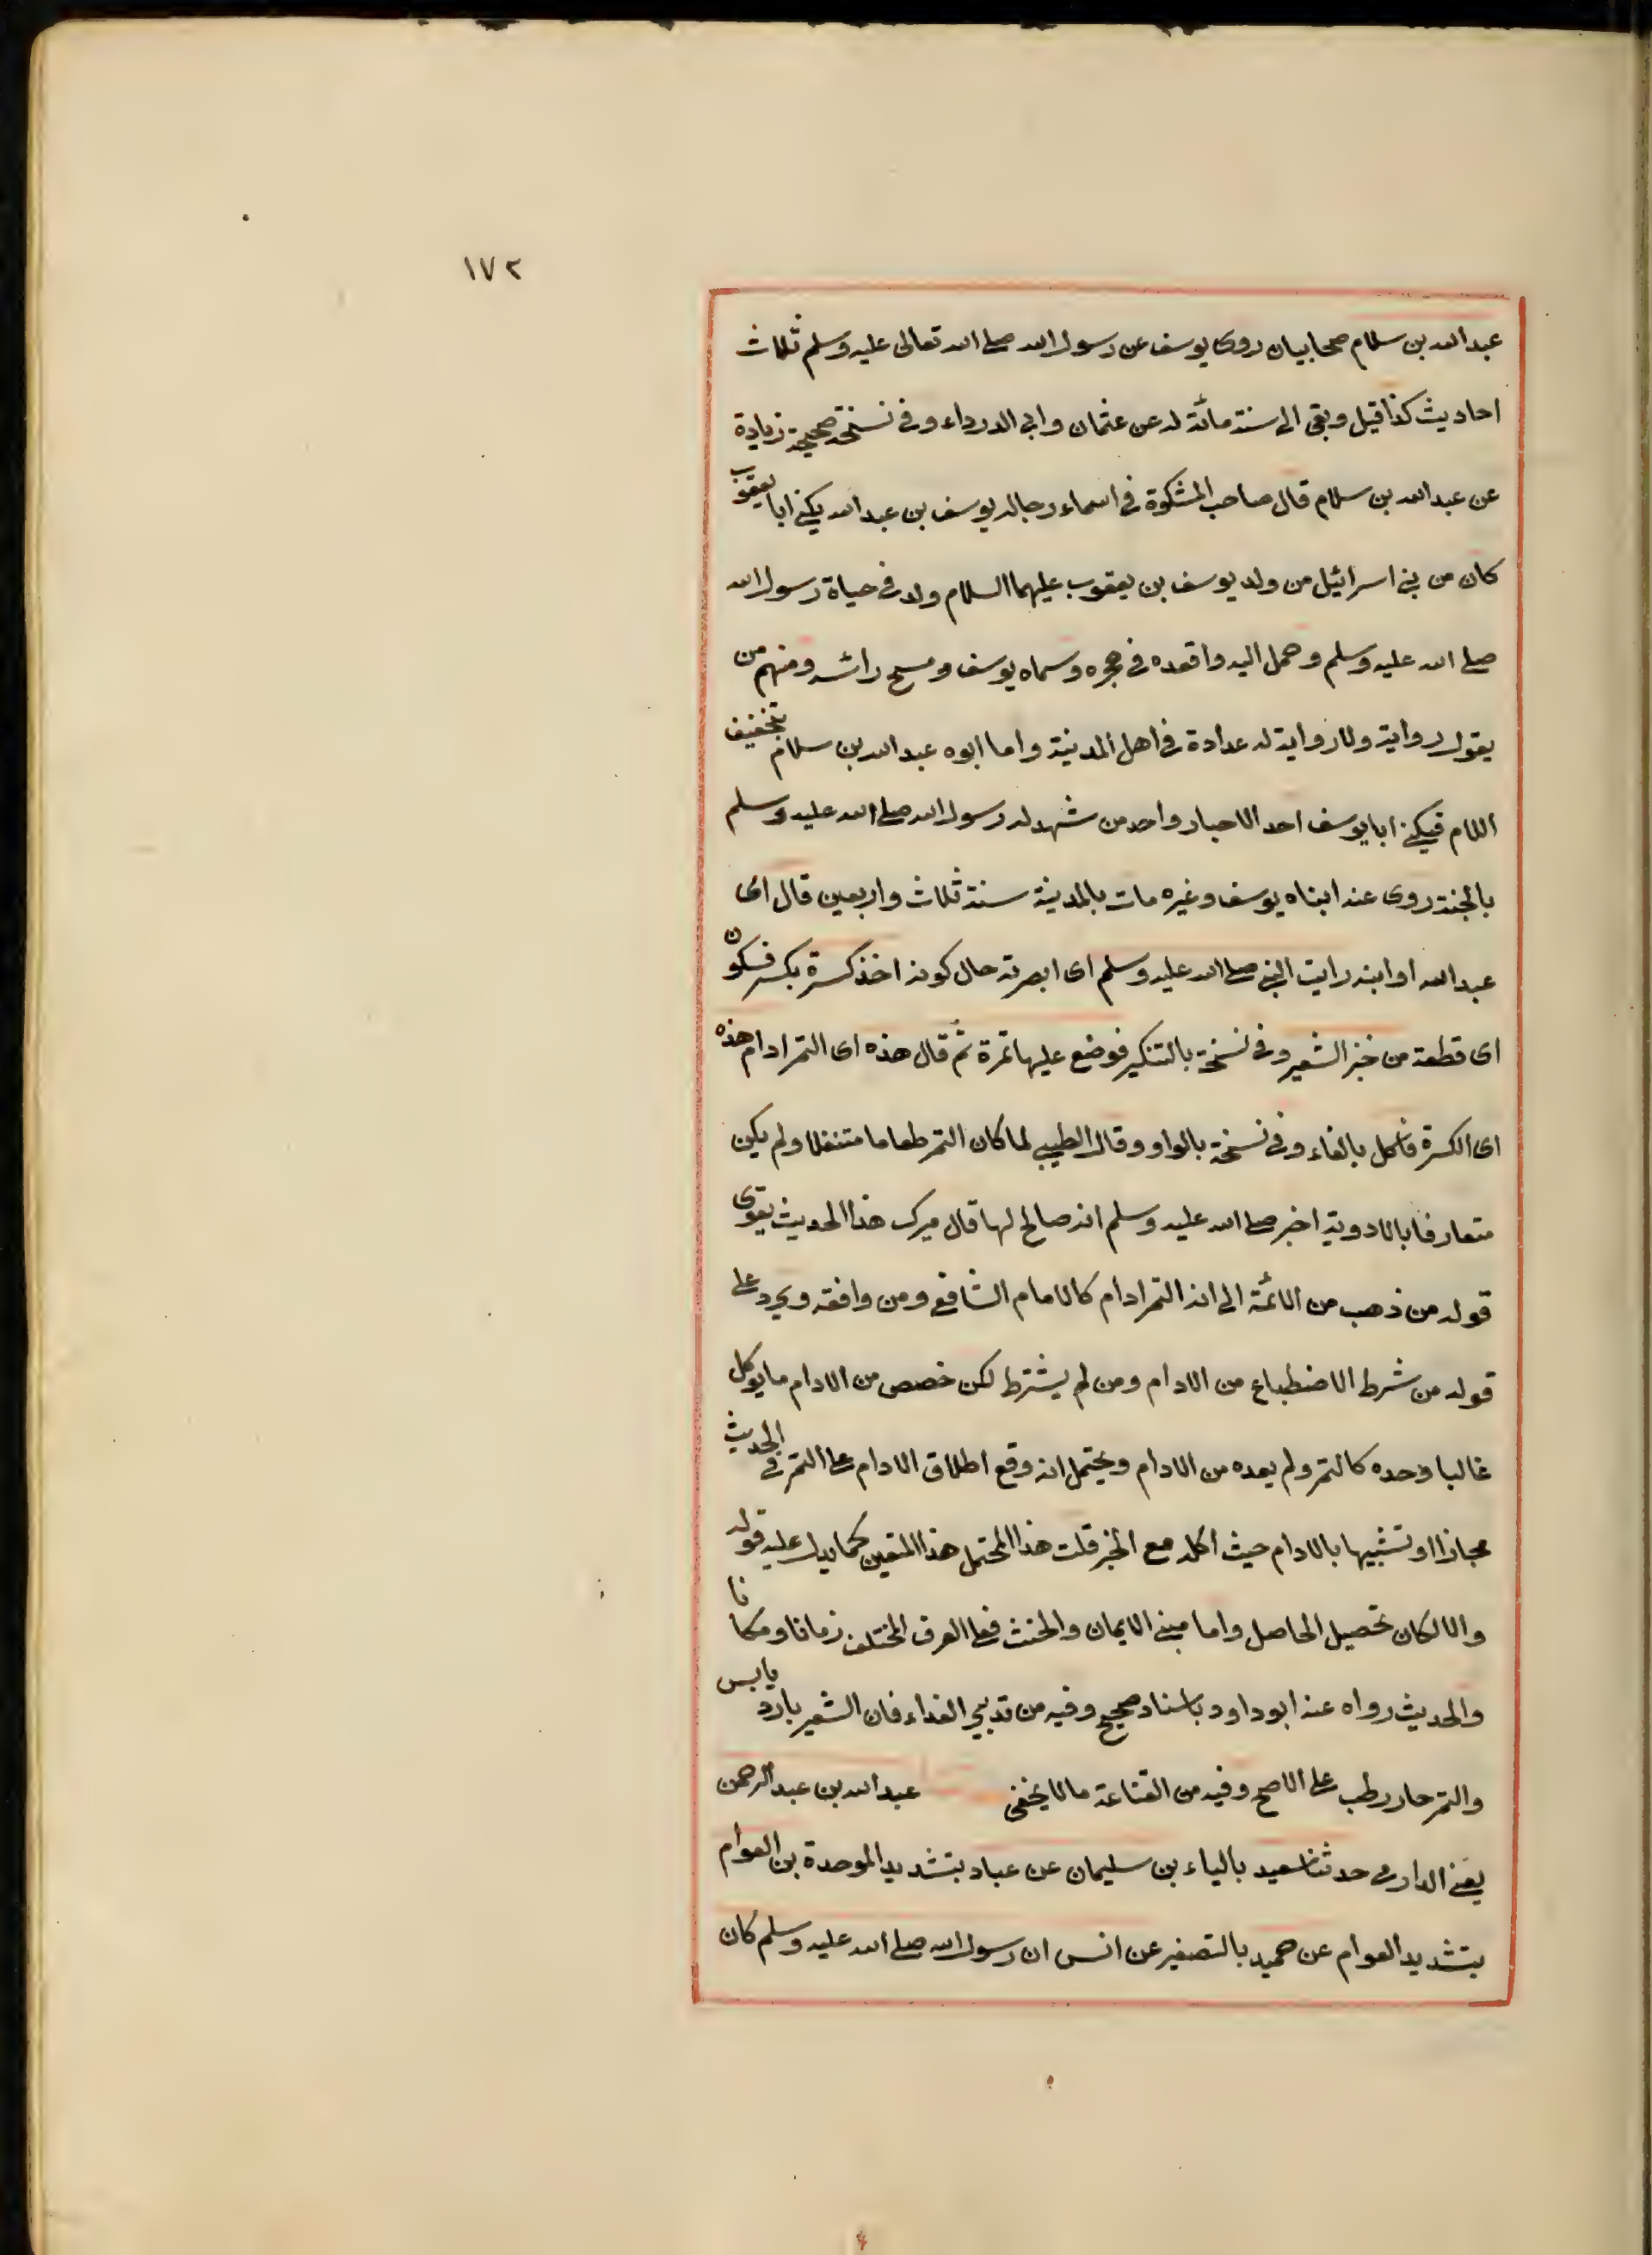 ١٧٢
عبد الله بن سلام صحابيان روى يوسف عن رسول الله صلى الله تعالى عليه وسلم ثلاث
احاديث كذا قيل وبقى الى سنة مائة له عن عثمان وابى الدرداء وفى نسخة صحيحة زيادة
عن عبد الله بن سلام قال صاحب المشكوة فى اسماء رجاله يوسف بن عبد الله يكنى ابا يعقوب
كان من بنى اسرائيل من ولد يوسف بن يعقوب عليهما السلام ولد فى حياة رسول الله
صلى الله عليه وسلم وحمل اليه واقعده فى حجره وسماه يوسف ومسح رائسه ومنهم من
يقول رواية ولا رواية له عدادة فى اهل المدينة واما ابوه عبد الله بن سلام بتخفيف
اللام فيكنى ابا يوسف احد الاحبار واحد من شهد له رسول الله صلى الله عليه وسلم
بالجنة روى عنه ابناه يوسف وغيره مات بالمدينة سنة ثلاث واربعين قال اى
عبد الله او ابنه رايت النبى صلى الله عليه وسلم اى ابصرته حال كونه اخذ كسرة بكسر فسكون
اى قطعة من خبز الشعير وفى نسخة بالتنكير فوضع عليها تمرة ثم قال هذه اى التمر ادام هذه
اى الكسرة فاكل بالفاء وفى نسخة بالواو وقال الطيبى لما كان التمر طعاما متنقلا ولم يكن
متعارفا بالادوية اخبر صلى الله عليه وسلم انه صالح لها قال ميرك هذا الحديث يقوى
قول من ذهب من الائمة الى انه التمر ادام كالامام الشافعى ومن وافقه ويرد على
قول من شرط الاضطباع من الادام ومن لم يشترط لكن خصص من الادام ما يوكل
غالبا وحده كالتمر ولم يعده من الادام ويحتمل انه وقع اطلاق الادام على التمر فى الحديث
مجازا او تشبيها بالادام حيث اكله مع الخبز قلت هذا المحتمل هذا المتعين كما يدل عليه قوله
والا لكان تحصيل الحاصل واما مبنى الايمان والحنث فعلى العرف المختلف زمانا ومكانا
والحديث رواه عنه ابو داود باسناد صحيح وفيه من تدبير الغداء فان الشعير بارد يابس
والتمر حار رطب على الاصح وفيه من القناعة ما لا يخفى عبد الله بن عبد الرحمن
يعنى الدارمى حدثنا سعيد بالياء بن سليمان عن عباد بتشديد الموحدة بن العوام
بتشديد العوام عن حميد بالتصغير عن انس ان رسول الله صلى الله عليه وسلم كان